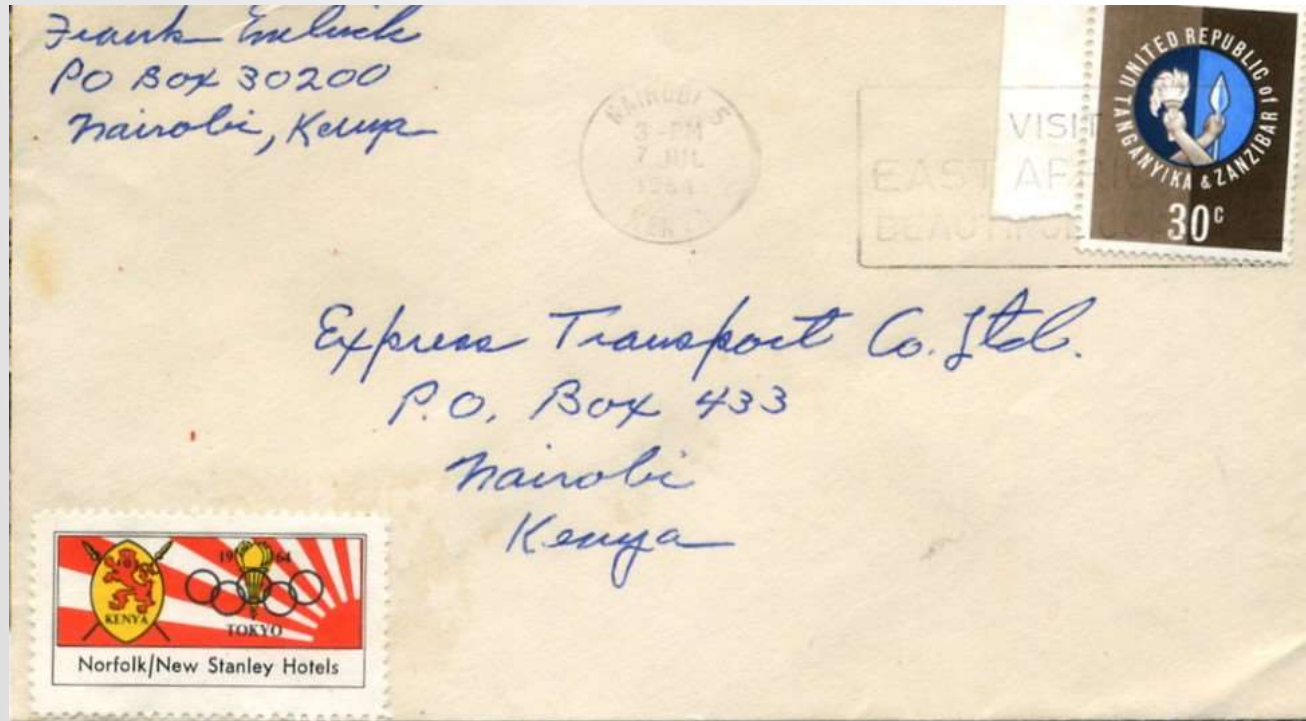 Frank
PO Box 30200
Nairobi, Kenya
NAIROBI
3 - PM
7 JUL
1964
KENYA
VISIT
EAST AFRICA
BEAUTIFUL
UNITED REPUBLIC of TANGANYIKA & ZANZIBAR
30c
Express Transport Co. Ltd.
P.O. Box 433
Nairobi
Kenya
KENYA
1964
TOKYO
Norfolk/New Stanley Hotels